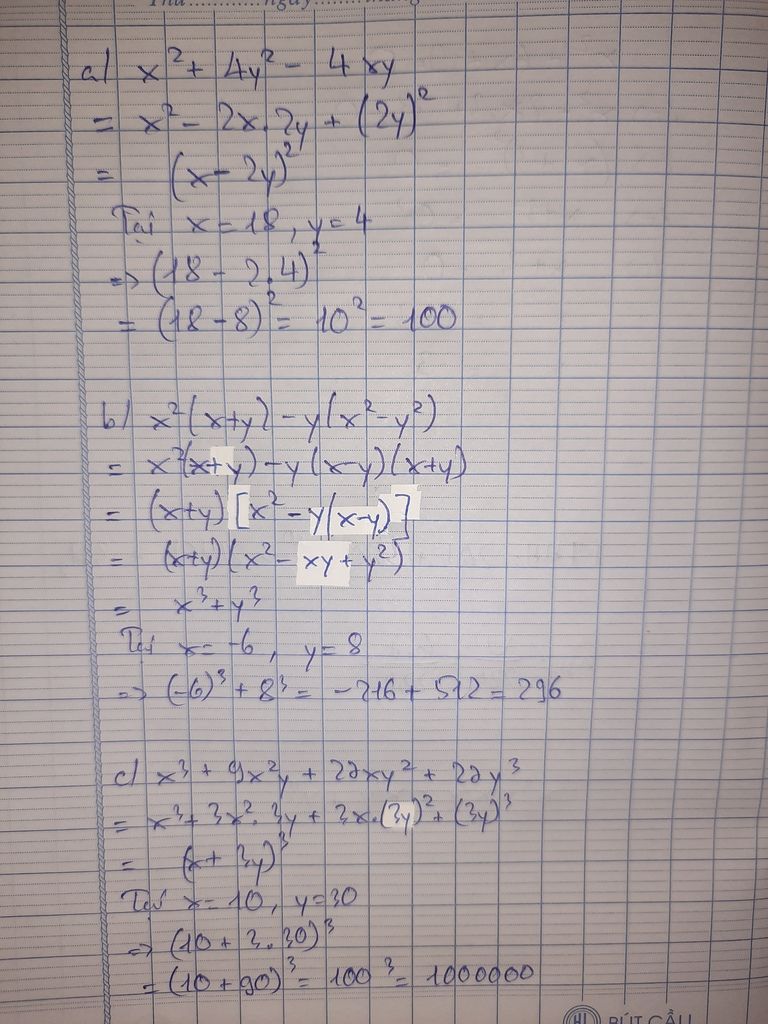 Thứ...........ngày.........tháng
a) x² + 4y² - 4xy
= x² - 2x.2y + (2y)²
= (x - 2y)²
Tại x = 18, y = 4
=> (18 - 2.4)²
= (18 - 8)² = 10² = 100
b) x²(x+y) - y(x² - y²)
= x²(x+y) - y(x-y)(x+y)
= (x+y)[x² - y(x-y)]
= (x+y)(x² - xy + y²)
= x³ + y³
Tại x = -6, y = 8
=> (-6)³ + 8³ = -216 + 512 = 296
c) x³ + 9x²y + 27xy² + 27y³
= x³ + 3x².3y + 3x.(3y)² + (3y)³
= (x + 3y)³
Tại x = 10, y = 30
=> (10 + 3.30)³
= (10 + 90)³ = 100³ = 1000000
BÚT CẦU